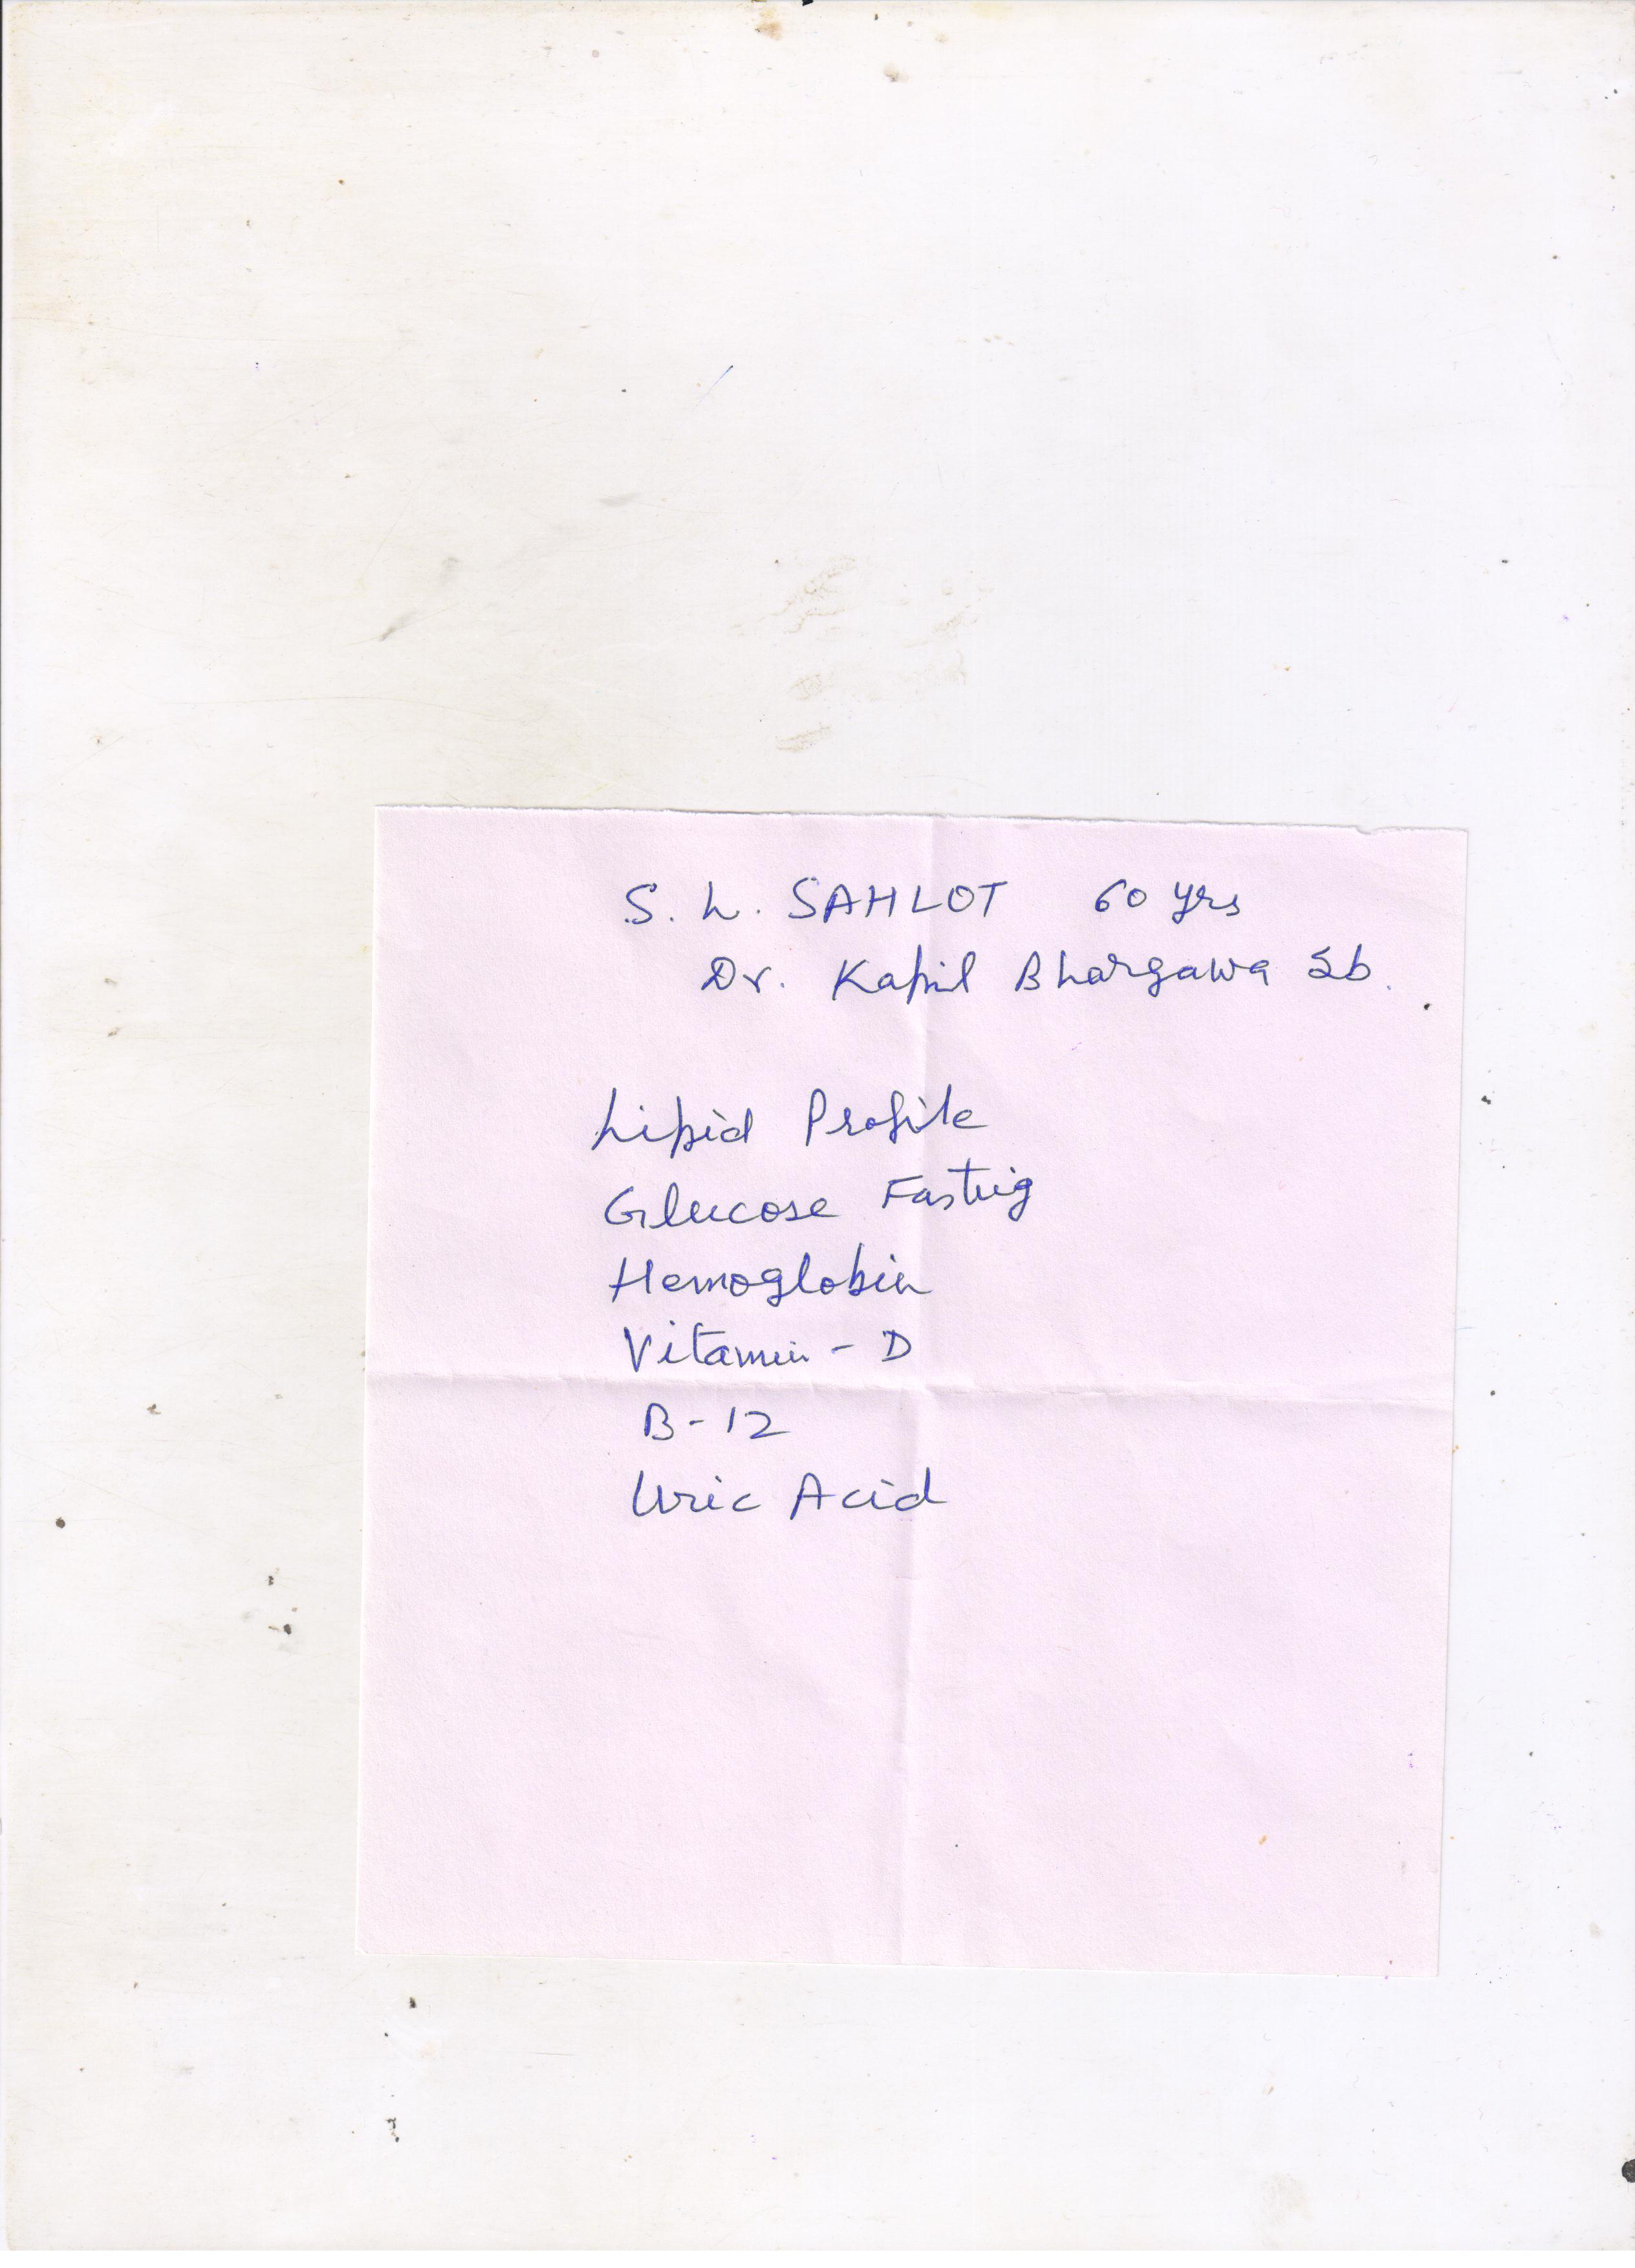 S. L. SAHLOT 60 yrs
Dr. Kapil Bhargawa Sb.
Lipid Profile
Glucose Fasting
Hemoglobin
Vitamin - D
B - 12
Uric Acid